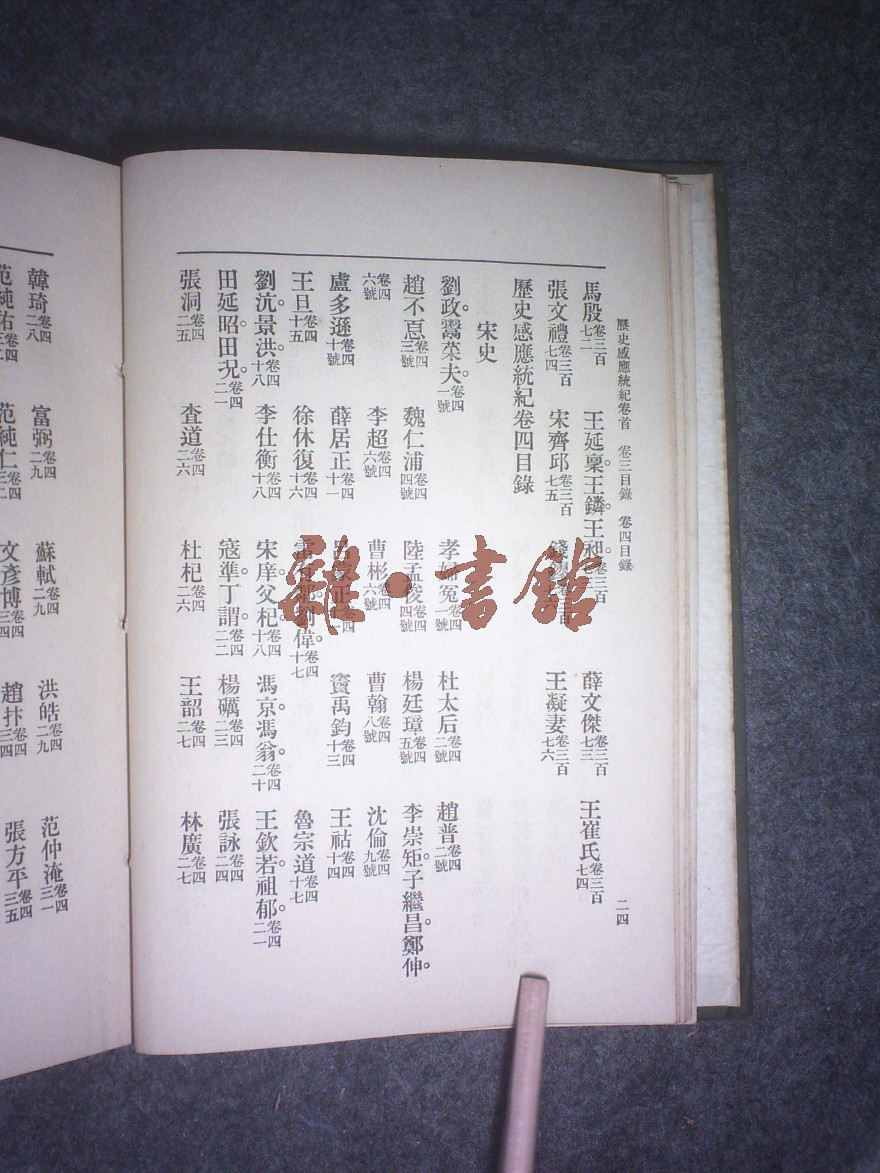 歷史感應統紀卷首 卷三目錄 卷四目錄 二四
馬殷卷三百七二 王延稟。王鏻。王昶。卷三百 薛文傑卷三百七三 王崔氏卷三百七四
張文禮卷三百七四 宋齊邱卷三百七五 錢 王凝妻卷三百七六
歷史感應統紀卷四目錄
宋史
劉政。鬻菜夫。卷四一號 孝婦冤卷四一號 杜太后卷四二號 趙普卷四二號
趙不怠卷四三號 魏仁浦卷四四號 陸孟俊卷四四號 楊廷璋卷四五號 李崇矩。子繼昌。鄭伸。
卷四六號 李超卷四六號 曹彬卷四六號 曹翰卷四八號 沈倫卷四九號
盧多遜卷四十號 薛居正卷四十一 呂蒙正卷四 竇禹鈞卷四十三 王祜卷四十四
王旦卷四十五 徐休復卷四十六 劉偉。卷四十七 魯宗道卷四十七
劉沆。景洪。卷四十八 李仕衡卷四十八 宋庠。父杞。卷四十八 馮京。馮翁。卷四二十 王欽若。祖郁。卷四二一
田延昭。田況。卷四二一 寇準。丁謂。卷四二二 楊礪卷四二三 張詠卷四二四
張洞卷四二五 査道卷四二六 杜杞卷四二六 王韶卷四二七 林廣卷四二七
韓琦卷四二八 富弼卷四二九 蘇軾卷四二九 洪皓卷四二九 范仲淹卷四三一
范純佑卷四三二 范純仁卷四三二 文彥博卷四三四 趙抃卷四三四 張方平卷四三五
雜·書館